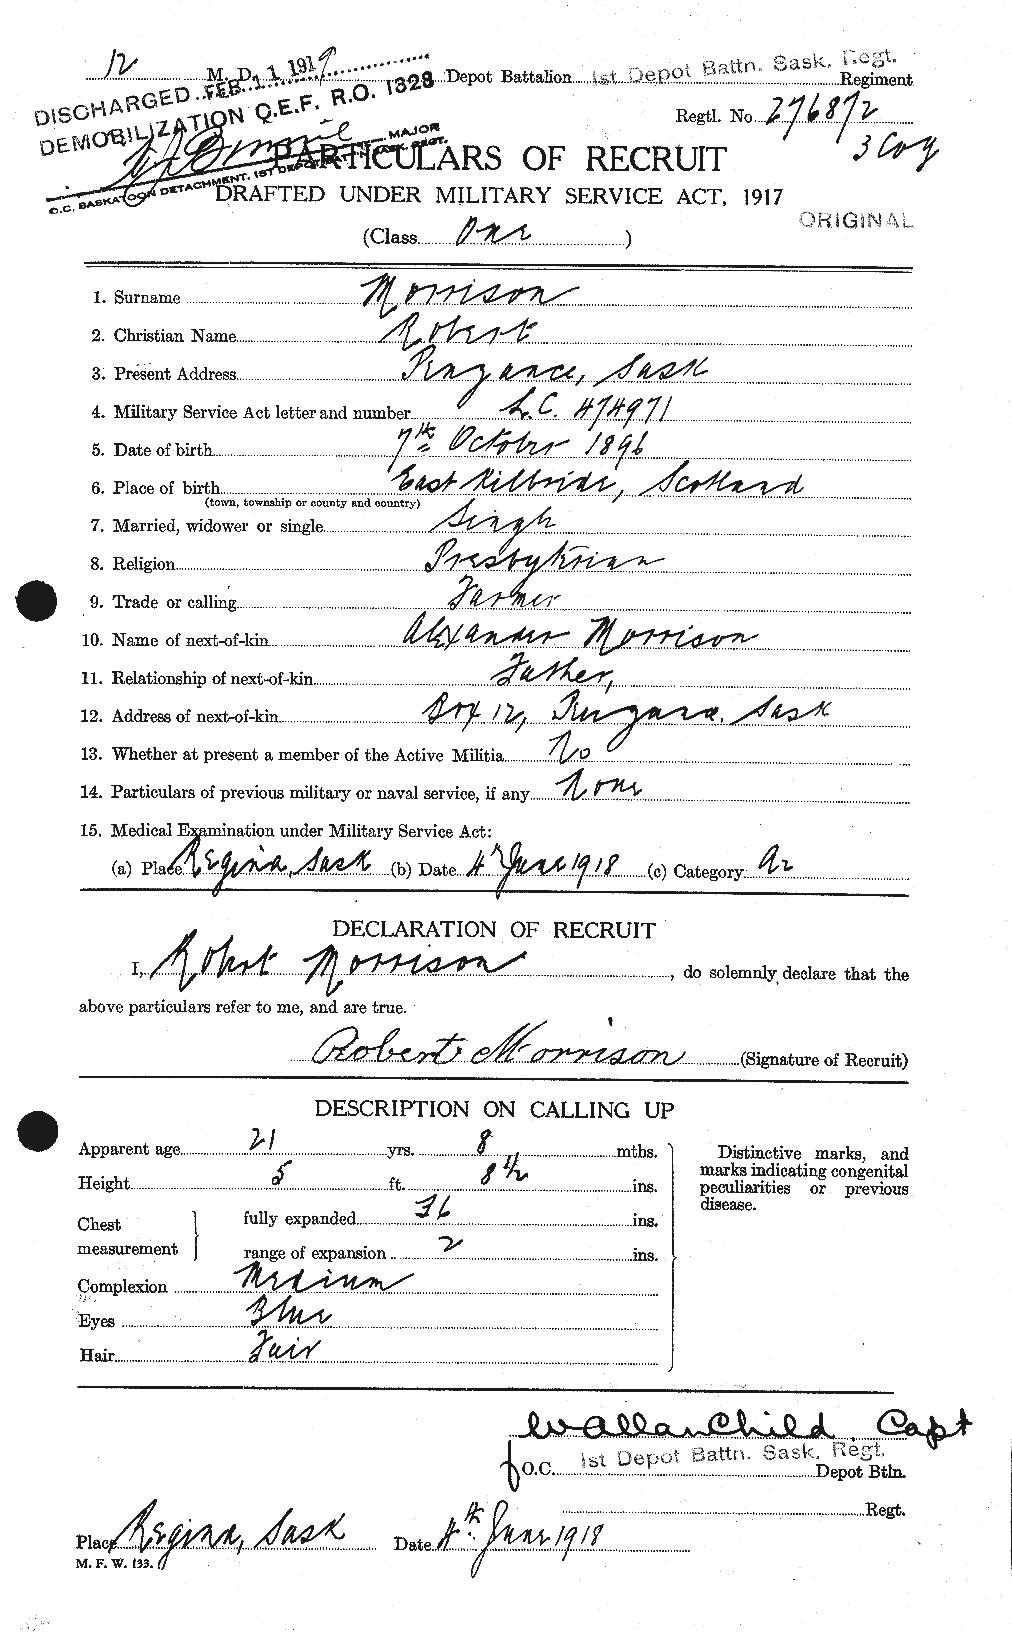 12 M. D. 1st Depot Battn. Sask. Regt.
Depot Battalion Regiment
DISCHARGED FEB 11 1919
DEMOBILIZATION O.E.F. R.O. 1328
Regtl. No. 276872
3 Coy
MAJOR
O.C. SASKATOON DETACHMENT, 1ST DEPOT BATT'N SASK. REGT.
PARTICULARS OF RECRUIT
DRAFTED UNDER MILITARY SERVICE ACT, 1917
ORIGINAL
(Class One)
1. Surname Morrison
2. Christian Name Robert
3. Present Address Penzance, Sask
4. Military Service Act letter and number L.C. 474971
5. Date of birth 7th October 1896
6. Place of birth East Kilbride, Scotland
(town, township or county and country)
7. Married, widower or single Single
8. Religion Presbyterian
9. Trade or calling Farmer
10. Name of next-of-kin Alexander Morrison
11. Relationship of next-of-kin Father,
12. Address of next-of-kin Box 12, Sask
13. Whether at present a member of the Active Militia No
14. Particulars of previous military or naval service, if any None
15. Medical Examination under Military Service Act:
(a) Place Regina, Sask (b) Date 4th June 1918 (c) Category A2
DECLARATION OF RECRUIT
I, Robert Morrison, do solemnly declare that the
above particulars refer to me, and are true.
Robert Morrison (Signature of Recruit)
DESCRIPTION ON CALLING UP
Apparent age 21 yrs. 8 mths.
Height 5 ft. 8 1/2 ins.
Chest measurement
fully expanded 36 ins.
range of expansion 2 ins.
Complexion Medium
Eyes Blue
Hair Fair
Distinctive marks, and
marks indicating congenital
peculiarities or previous
disease.
W Allan Child, Capt
f O.C. 1st Depot Battn. Sask. Regt.
Depot Btln.
Regt.
Place Regina, Sask Date 4th June 1918
M. F. W. 133.